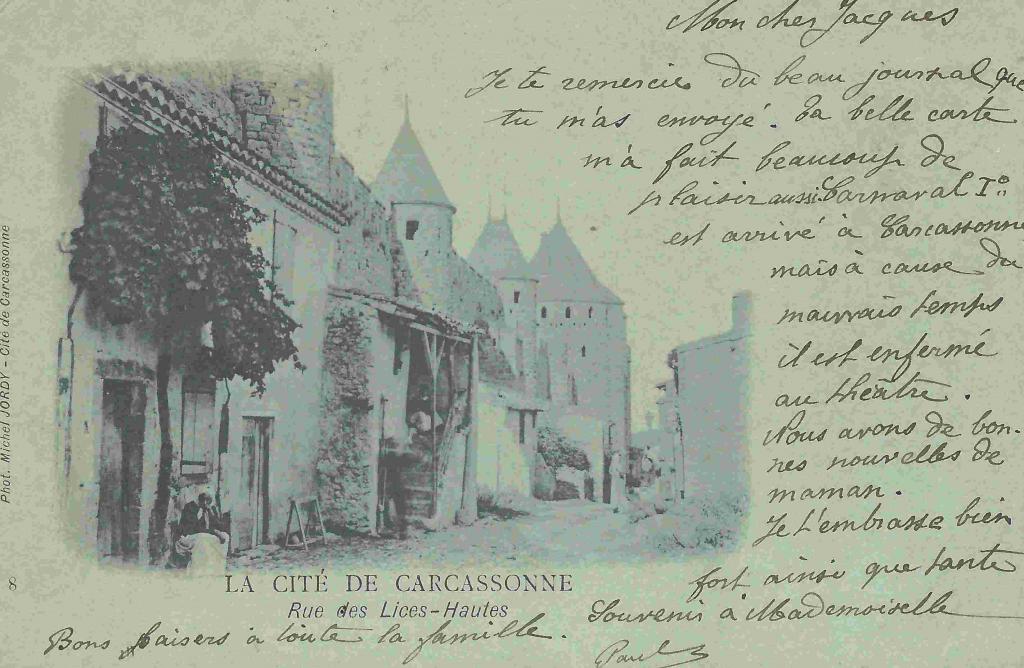 Mon cher Jacques
Je te remercie du beau journal que
tu m'as envoyé. Ta belle carte
m'a fait beaucoup de
plaisir aussi. Carnaval Iº
est arrivé à Carcassonne
mais à cause du
mauvais temps
il est enfermé
au théâtre.
Nous avons de bon-
nes nouvelles de
maman.
Je t'embrasse bien
fort ainsi que tante
Souvenir à Mademoiselle
Paul
Bons baisers à toute la famille.
LA CITÉ DE CARCASSONNE
Rue des Lices-Hautes
Phot. Michel JORDY - Cité de Carcassonne
8